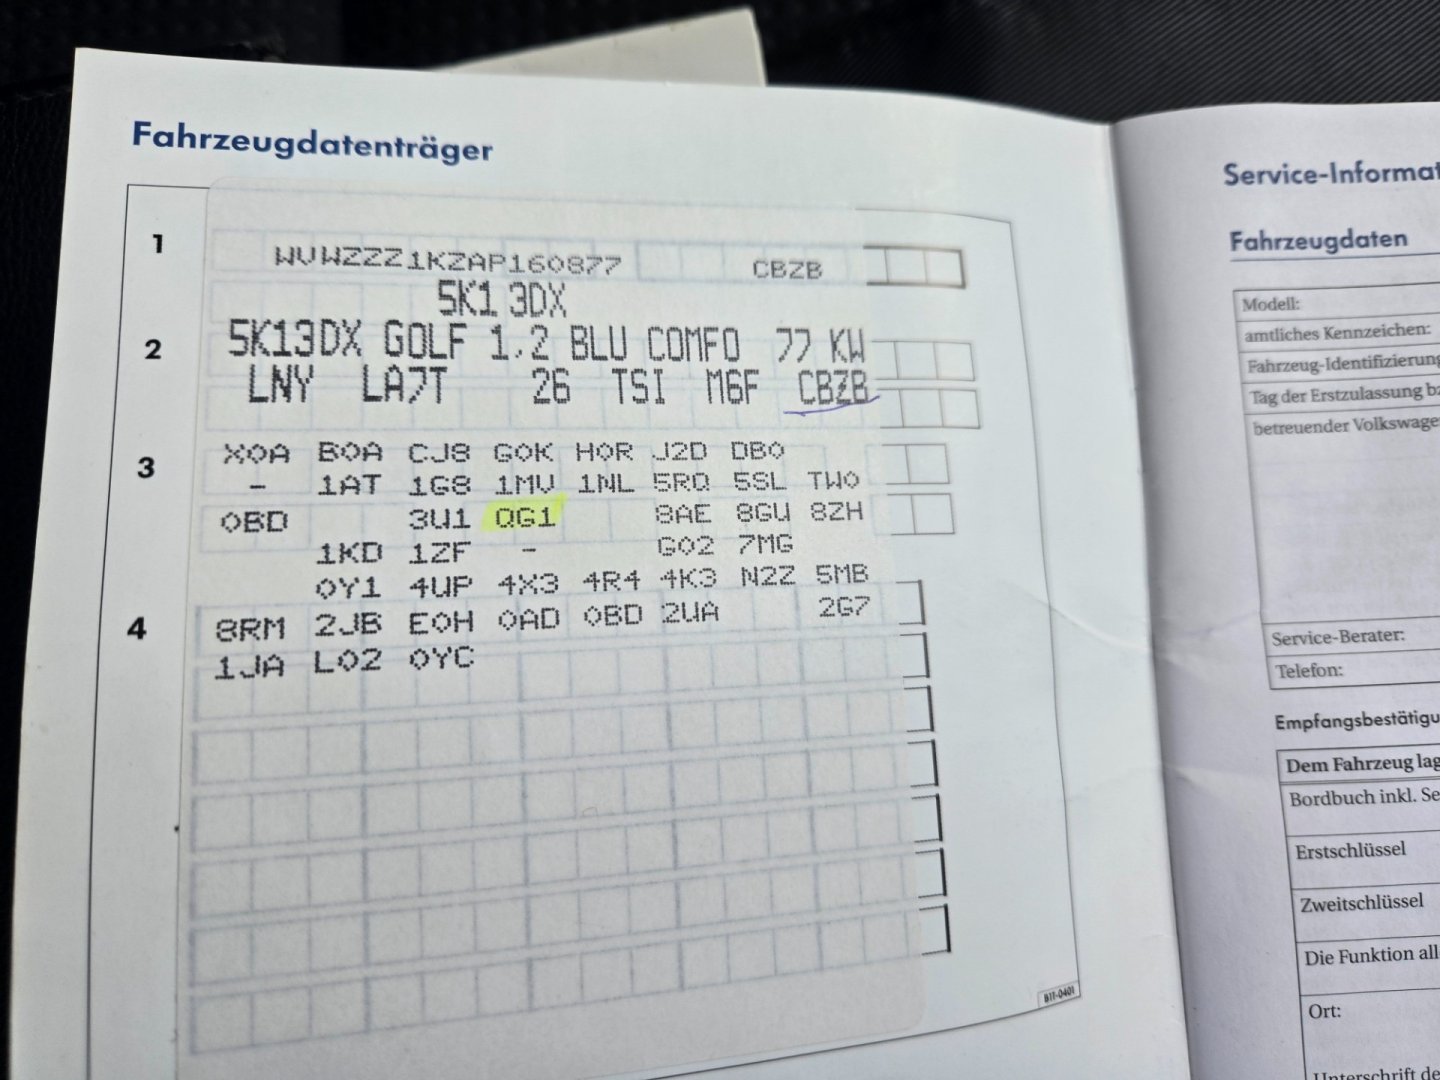 Fahrzeugdatenträger
1
WVWZZZ1KZAP160877 CBZB
5K1 3DX
2
5K13DX GOLF 1,2 BLU COMFO 77 KW
LNY LA7T 26 TSI M6F CBZB
3
X0A B0A CJ8 G0K H0R J2D DB0
- 1AT 1G8 1MV 1NL 5RQ 5SL TW0
0BD 3U1 QG1 8AE 8GU 8ZH
1KD 1ZF - G02 7MG
0Y1 4UP 4X3 4R4 4K3 N2Z 5MB
4
8RM 2JB E0H 0AD 0BD 2UA 2G7
1JA L02 0YC
B1T-0401
Service-Informat
Fahrzeugdaten
Modell:
amtliches Kennzeichen:
Fahrzeug-Identifizierung
Tag der Erstzulassung bz
betreuender Volkswage
Service-Berater:
Telefon:
Empfangsbestätigu
Dem Fahrzeug lag
Bordbuch inkl. Se
Erstschlüssel
Zweitschlüssel
Die Funktion all
Ort:
Unterschrift de